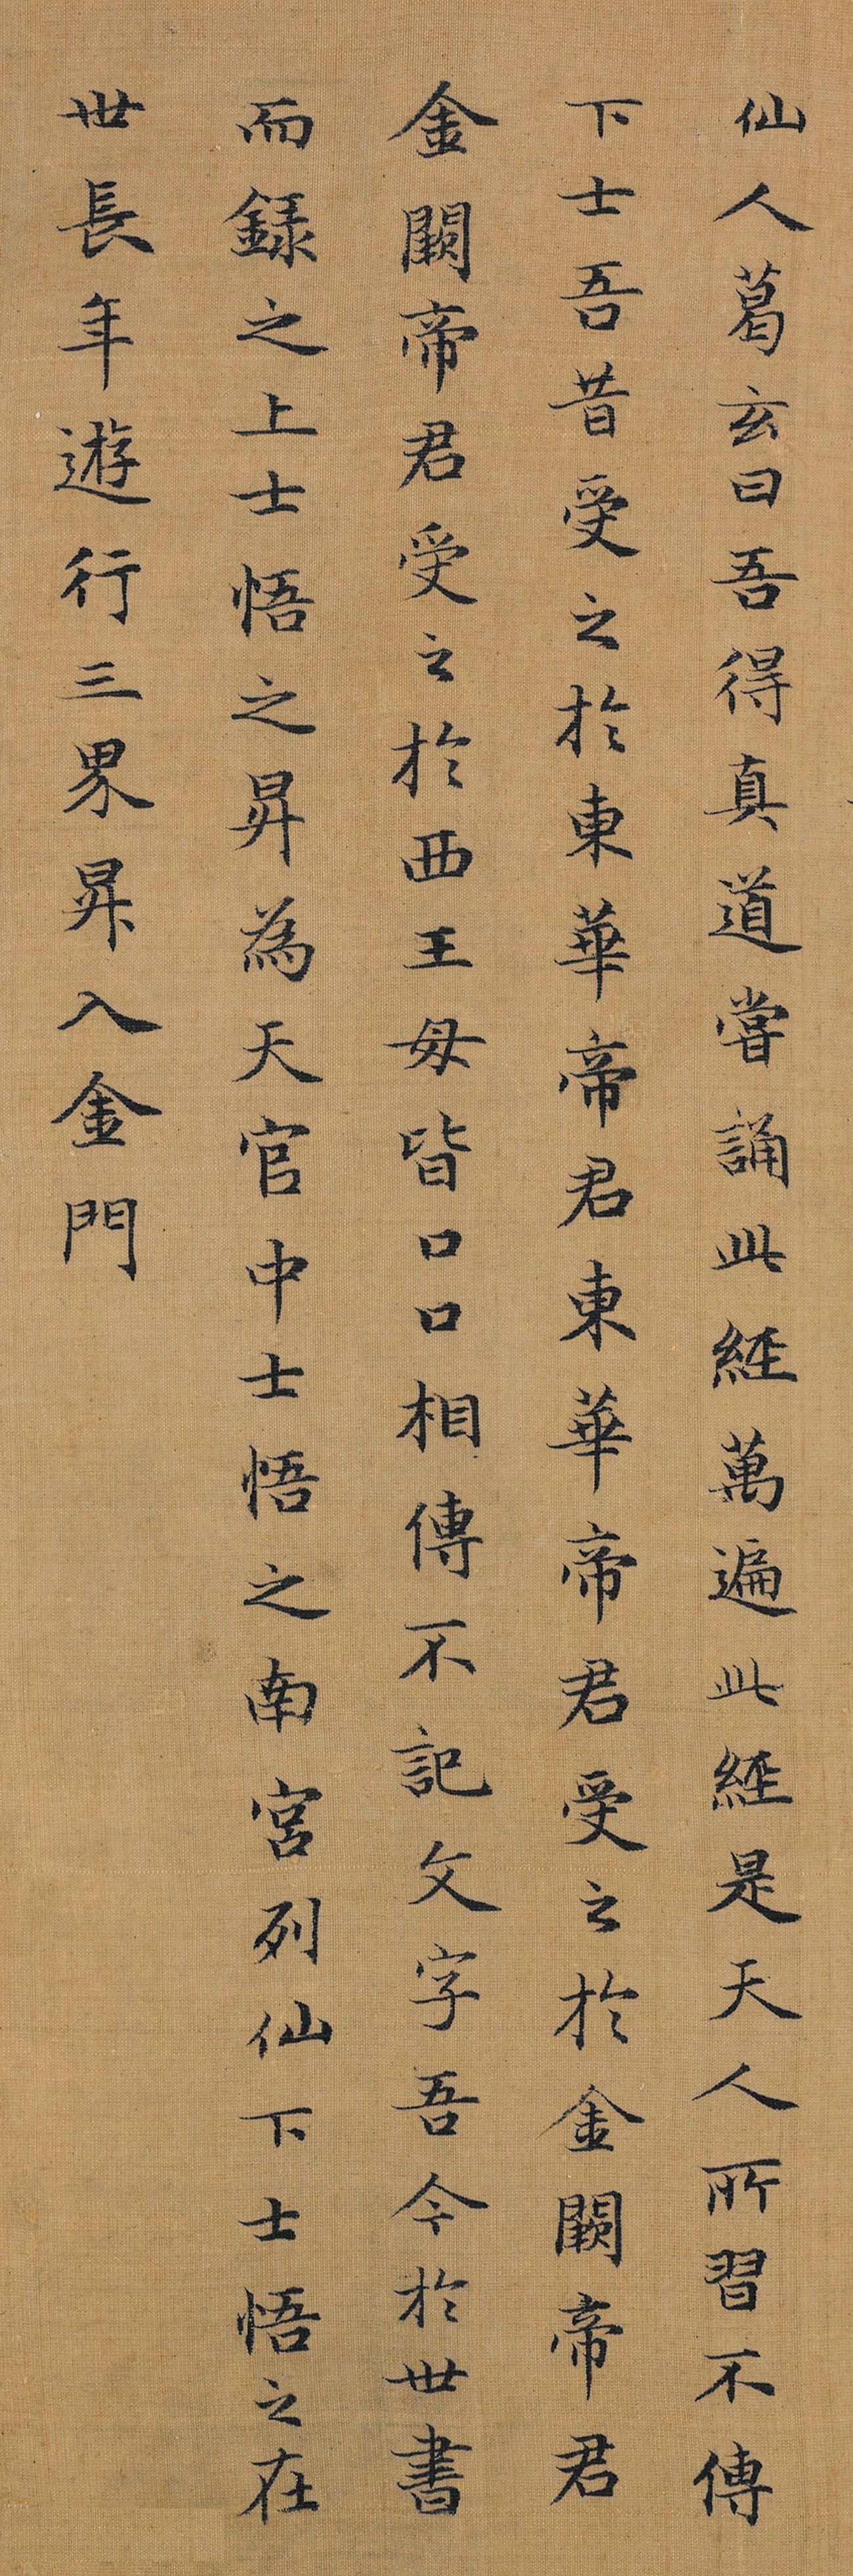 仙人葛玄曰吾得真道嘗誦此經萬遍此經是天人所習不傳
下士吾昔受之於東華帝君東華帝君受之於金闕帝君
金闕帝君受之於西王母皆口口相傳不記文字吾今於世書
而録之上士悟之昇為天官中士悟之南宮列仙下士悟之在
世長年遊行三界昇入金門